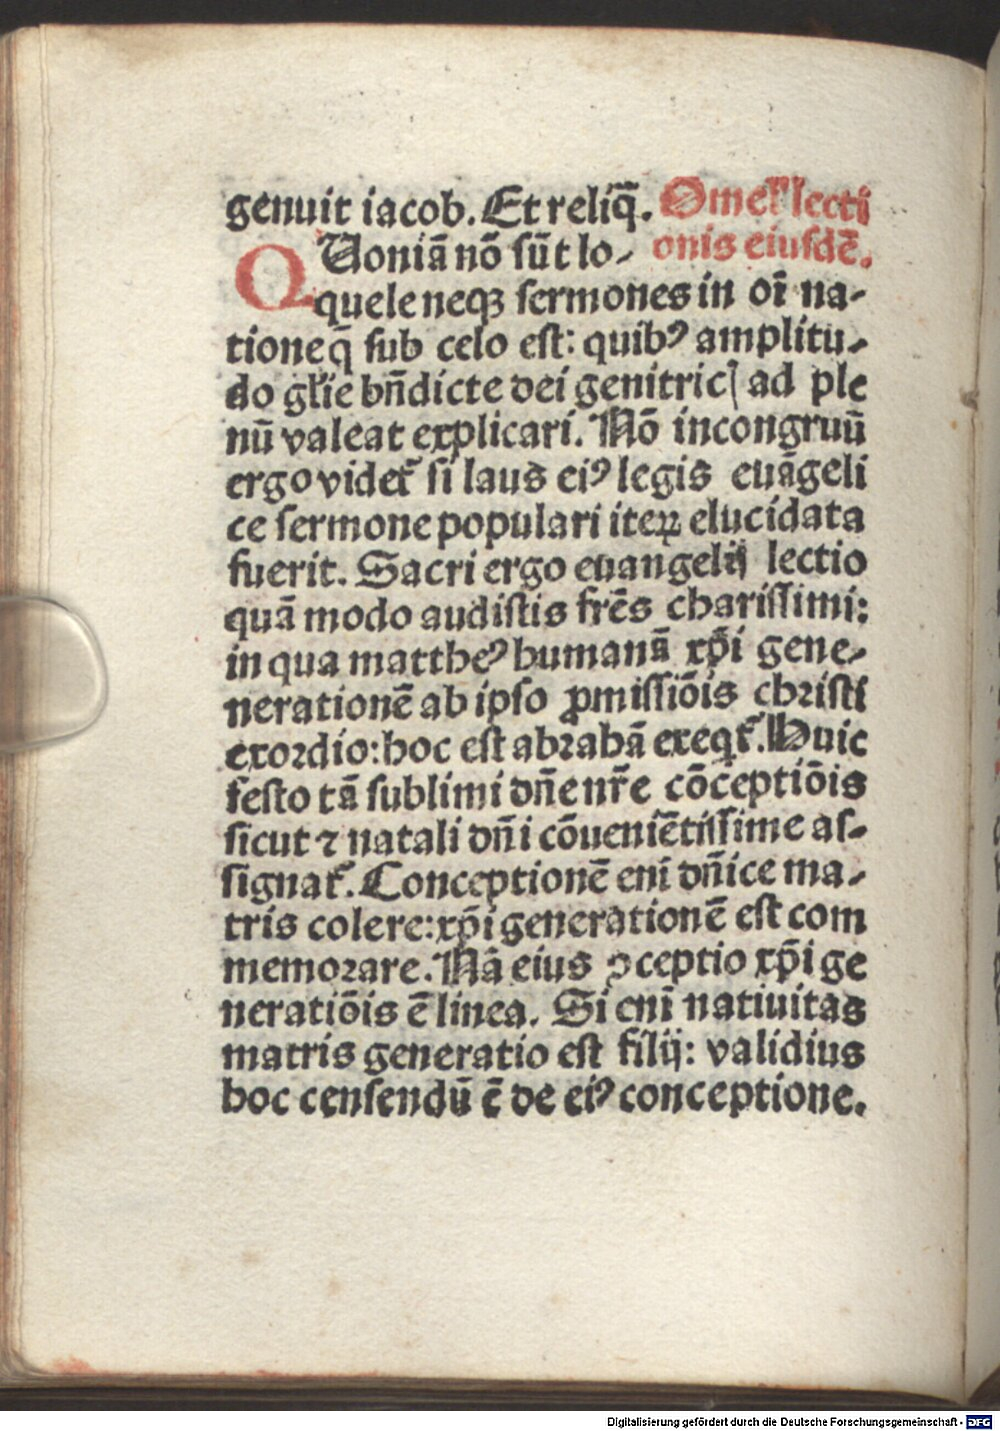 genuit iacob. Et reliq̃. Omel̃ lecti
Uoniã nõ sũt lo- onis eiusdẽ.
Q quele neqꝫ sermones in oĩ na-
tione q̃ sub celo est: quibꝰ amplitu-
do gl̃ie bñdicte dei genitric̣ ad ple
nũ valeat explicari. Nõ incongruũ
ergo videt᷑ si laus eiꝰ legis euãgeli
ce sermone populari iteꝝ elucidata
fuerit. Sacri ergo euangelij lectio
quã modo audistis frẽs charissimi:
in qua mattheꝰ humanã xp̃i gene-
nerationẽ ab ipso ꝓmissiõis christi
exordio: hoc est abrahã exeqt᷑. Huic
festo tã sublimi dñe nr̃e cõceptiõis
sicut ⁊ natali dñi cõueniẽtissime as-
signat᷑. Conceptionẽ eni dñice ma-
tris colere: xp̃i generationẽ est com
memorare. Nã eius ꝯceptio xp̃i ge
neratiõis ẽ linea. Si enĩ natiuitas
matris generatio est filij: validius
hoc censendũ ẽ de eiꝰ conceptione.
Digitalisierung gefördert durch die Deutsche Forschungsgemeinschaft - DFG